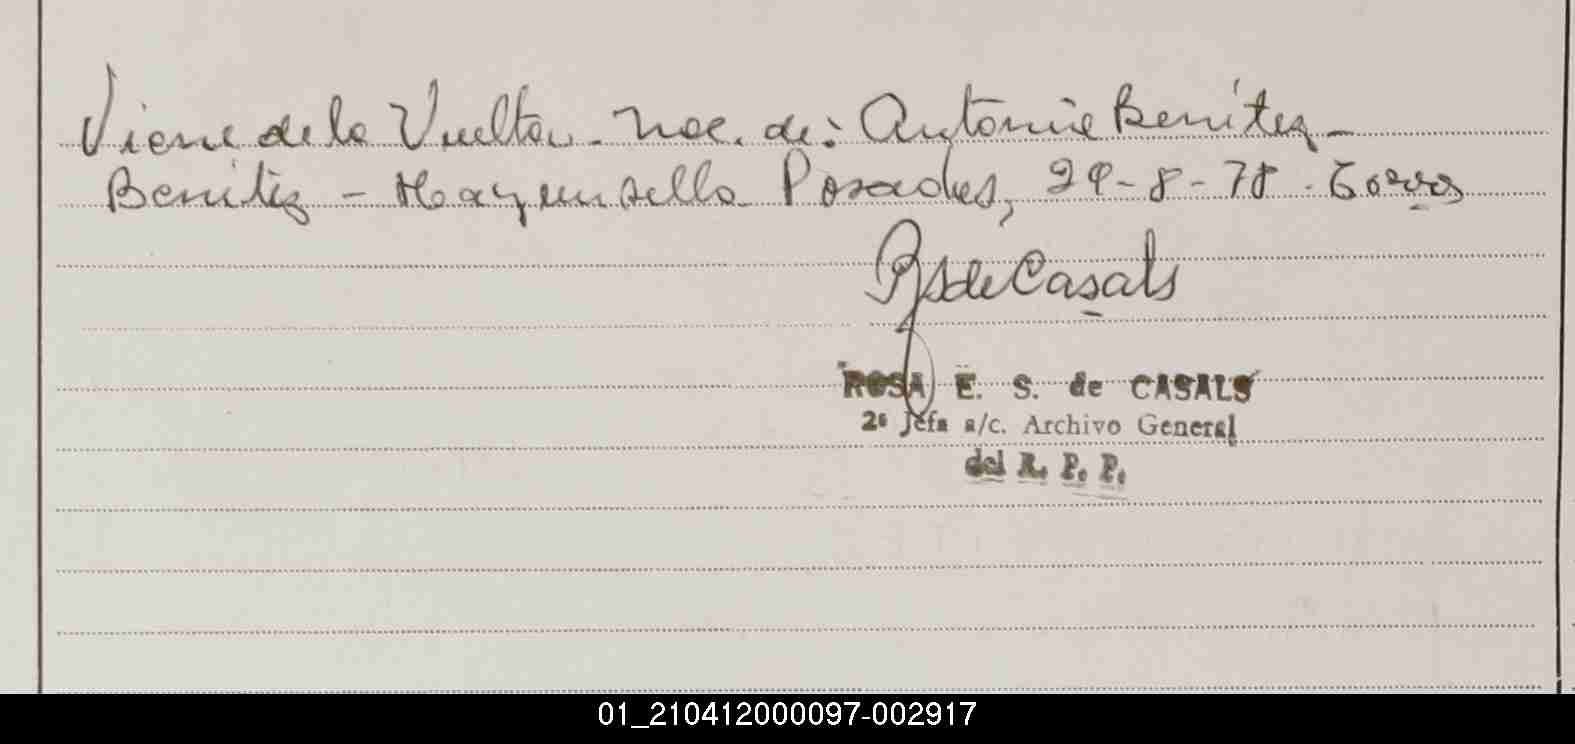 Viene de la Vuelta - Nac. de: Antonia Benítez -
Benitez - Hay un sello Posadas, 29-8-78.
RSdeCasals
ROSA E. S. de CASALS
2ª Jefa a/c. Archivo General
del R. P. P.
01_210412000097-002917